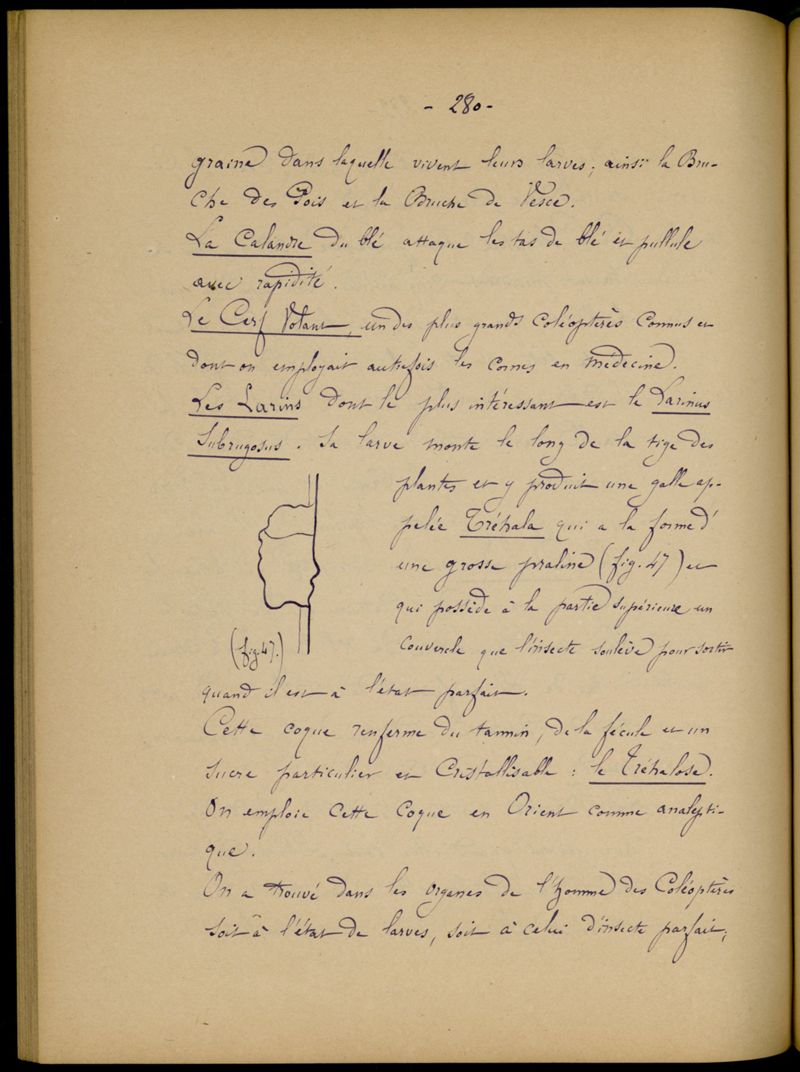 - 280 -
graine dans laquelle vivent leurs larves; ainsi la Bru-
che des Pois et la Bruche de Vesce.
La Calandre du blé attaque les tas de blé et pullule
avec rapidité.
Le Cerf Volant, un des plus grands coléoptères connus et
dont on employait autrefois les cornes en médecine.
Les Larins dont le plus intéressant est le Larinus
Subrugosus. Sa larve monte le long de la tige des
plantes et y produit une galle ap-
pelée Tréhala qui a la forme d'
une grosse praline (fig. 47) et
qui possède à la partie supérieure un
couvercle que l'insecte soulève pour sortir
(fig. 47.)
quand il est à l'état parfait.
Cette coque renferme du tannin, de la fécule et un
sucre particulier et cristallisable : le Tréhalose.
On emploie cette coque en Orient comme analepti-
que.
On a trouvé dans les organes de l'homme des Coléoptères
soit à l'état de larves, soit à celui d'insecte parfait;